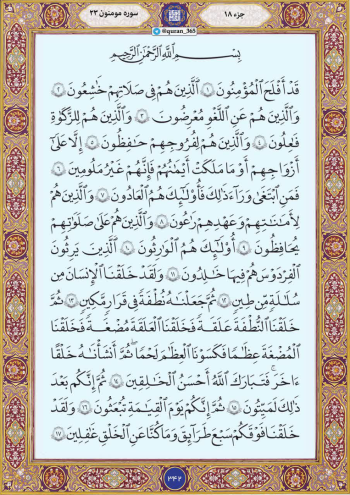 جزء ۱۸
@quran_365
سوره مومنون ۲۳
بِسْمِ اللَّهِ الرَّحْمَٰنِ الرَّحِيمِ
قَدْ أَفْلَحَ الْمُؤْمِنُونَ ١ الَّذِينَ هُمْ فِي صَلَاتِهِمْ خَاشِعُونَ ٢
وَالَّذِينَ هُمْ عَنِ اللَّغْوِ مُعْرِضُونَ ٣ وَالَّذِينَ هُمْ لِلزَّكَوٰةِ
فَاعِلُونَ ٤ وَالَّذِينَ هُمْ لِفُرُوجِهِمْ حَافِظُونَ ٥ إِلَّا عَلَىٰ
أَزْوَاجِهِمْ أَوْ مَا مَلَكَتْ أَيْمَانُهُمْ فَإِنَّهُمْ غَيْرُ مَلُومِينَ ٦
فَمَنِ ابْتَغَىٰ وَرَاءَ ذَٰلِكَ فَأُولَٰئِكَ هُمُ الْعَادُونَ ٧ وَالَّذِينَ هُمْ
لِأَمَانَاتِهِمْ وَعَهْدِهِمْ رَاعُونَ ٨ وَالَّذِينَ هُمْ عَلَىٰ صَلَوَاتِهِمْ
يُحَافِظُونَ ٩ أُولَٰئِكَ هُمُ الْوَارِثُونَ ١٠ الَّذِينَ يَرِثُونَ
الْفِرْدَوْسَ هُمْ فِيهَا خَالِدُونَ ١١ وَلَقَدْ خَلَقْنَا الْإِنسَانَ مِن
سُلَالَةٍ مِّن طِينٍ ١٢ ثُمَّ جَعَلْنَاهُ نُطْفَةً فِي قَرَارٍ مَّكِينٍ ١٣ ثُمَّ
خَلَقْنَا النُّطْفَةَ عَلَقَةً فَخَلَقْنَا الْعَلَقَةَ مُضْغَةً فَخَلَقْنَا
الْمُضْغَةَ عِظَامًا فَكَسَوْنَا الْعِظَامَ لَحْمًا ثُمَّ أَنشَأْنَاهُ خَلْقًا
ءَاخَرَ فَتَبَارَكَ اللَّهُ أَحْسَنُ الْخَالِقِينَ ١٤ ثُمَّ إِنَّكُم بَعْدَ
ذَٰلِكَ لَمَيِّتُونَ ١٥ ثُمَّ إِنَّكُمْ يَوْمَ الْقِيَامَةِ تُبْعَثُونَ ١٦ وَلَقَدْ
خَلَقْنَا فَوْقَكُمْ سَبْعَ طَرَائِقَ وَمَا كُنَّا عَنِ الْخَلْقِ غَافِلِينَ ١٧
۳۴۲